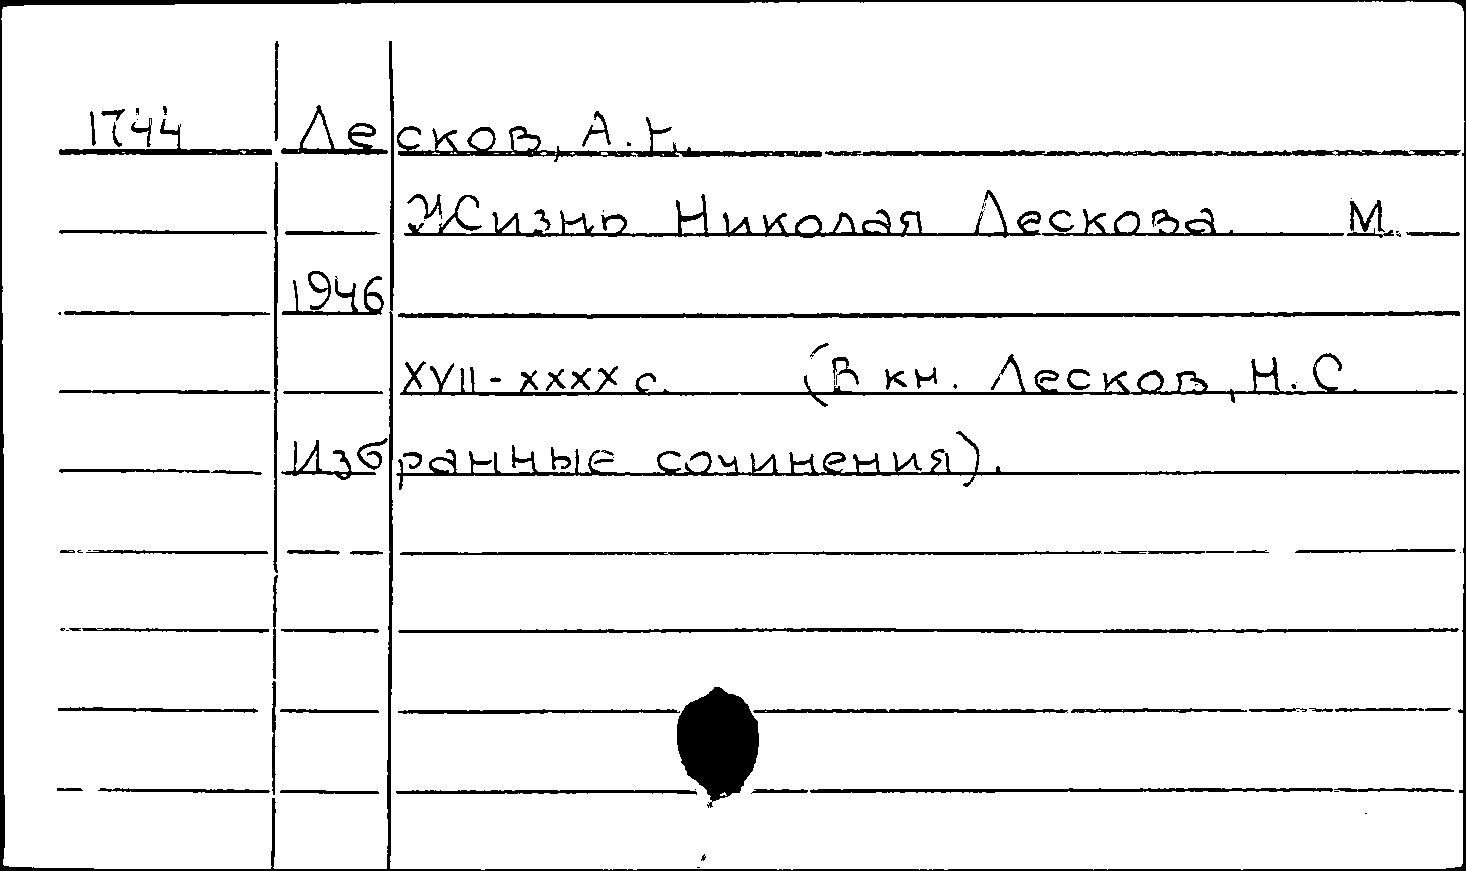 1744 Лесков, А.Н.
Жизнь Николая Лескова. М.
1946
XVII-XXXX с. (В кн. Лесков, Н.С.
Избранные сочинения).